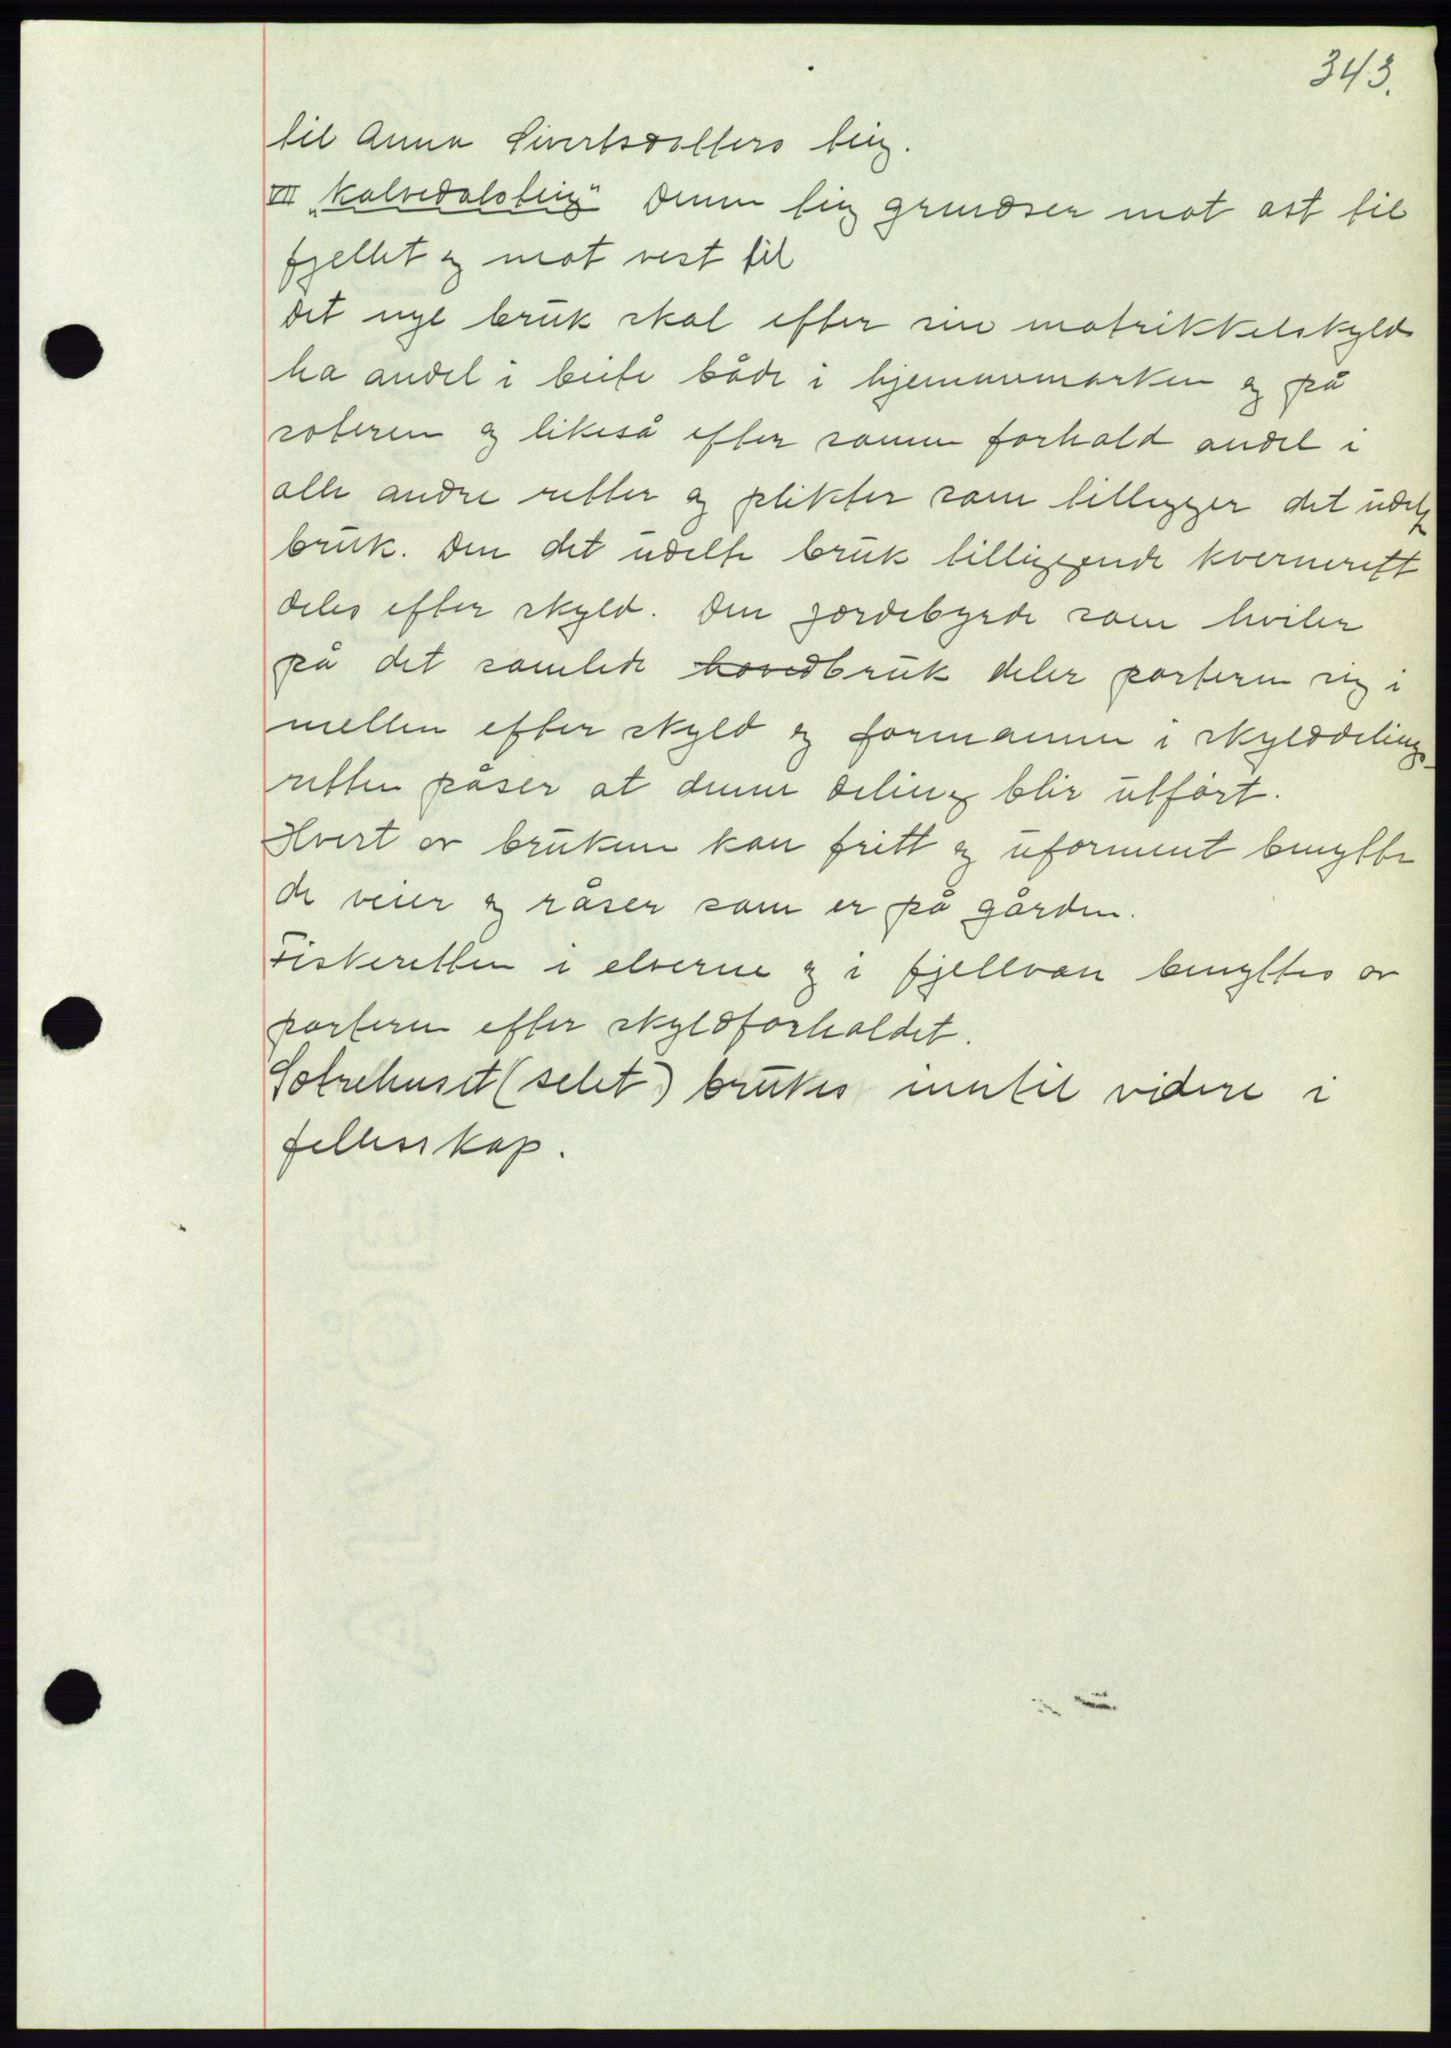 343.
til Anna Sivertsdotters teig.
VII "Kalvedalsteig" Denne teig grendser mot ost til
fjellet og mot vest til
Det nye bruk skal efter sin matrikkelskyld
ha andel i beite både i hjemmemarken og på
sæteren og likeså efter samme forhold andel i
alle andre retter og plikter som tillegger det udelte
bruk. Den det udelte bruk tilliggende kvernerett
deles efter skyld. Den gjerdebyrde som hviler
på det samlede hovedbruk deler parterne sig i
mellem efter skyld og formannen i skylddelings-
retten påser at denne deling blir utført.
Hvert av brukene kan fritt og uforment benytte
de veier og råser som er på gården.
Fiskeretten i elverne og i fjellvan benyttes av
parterne efter skyldforholdet.
Sætrehuset (selet) brukes inntil videre i
fellesskap.